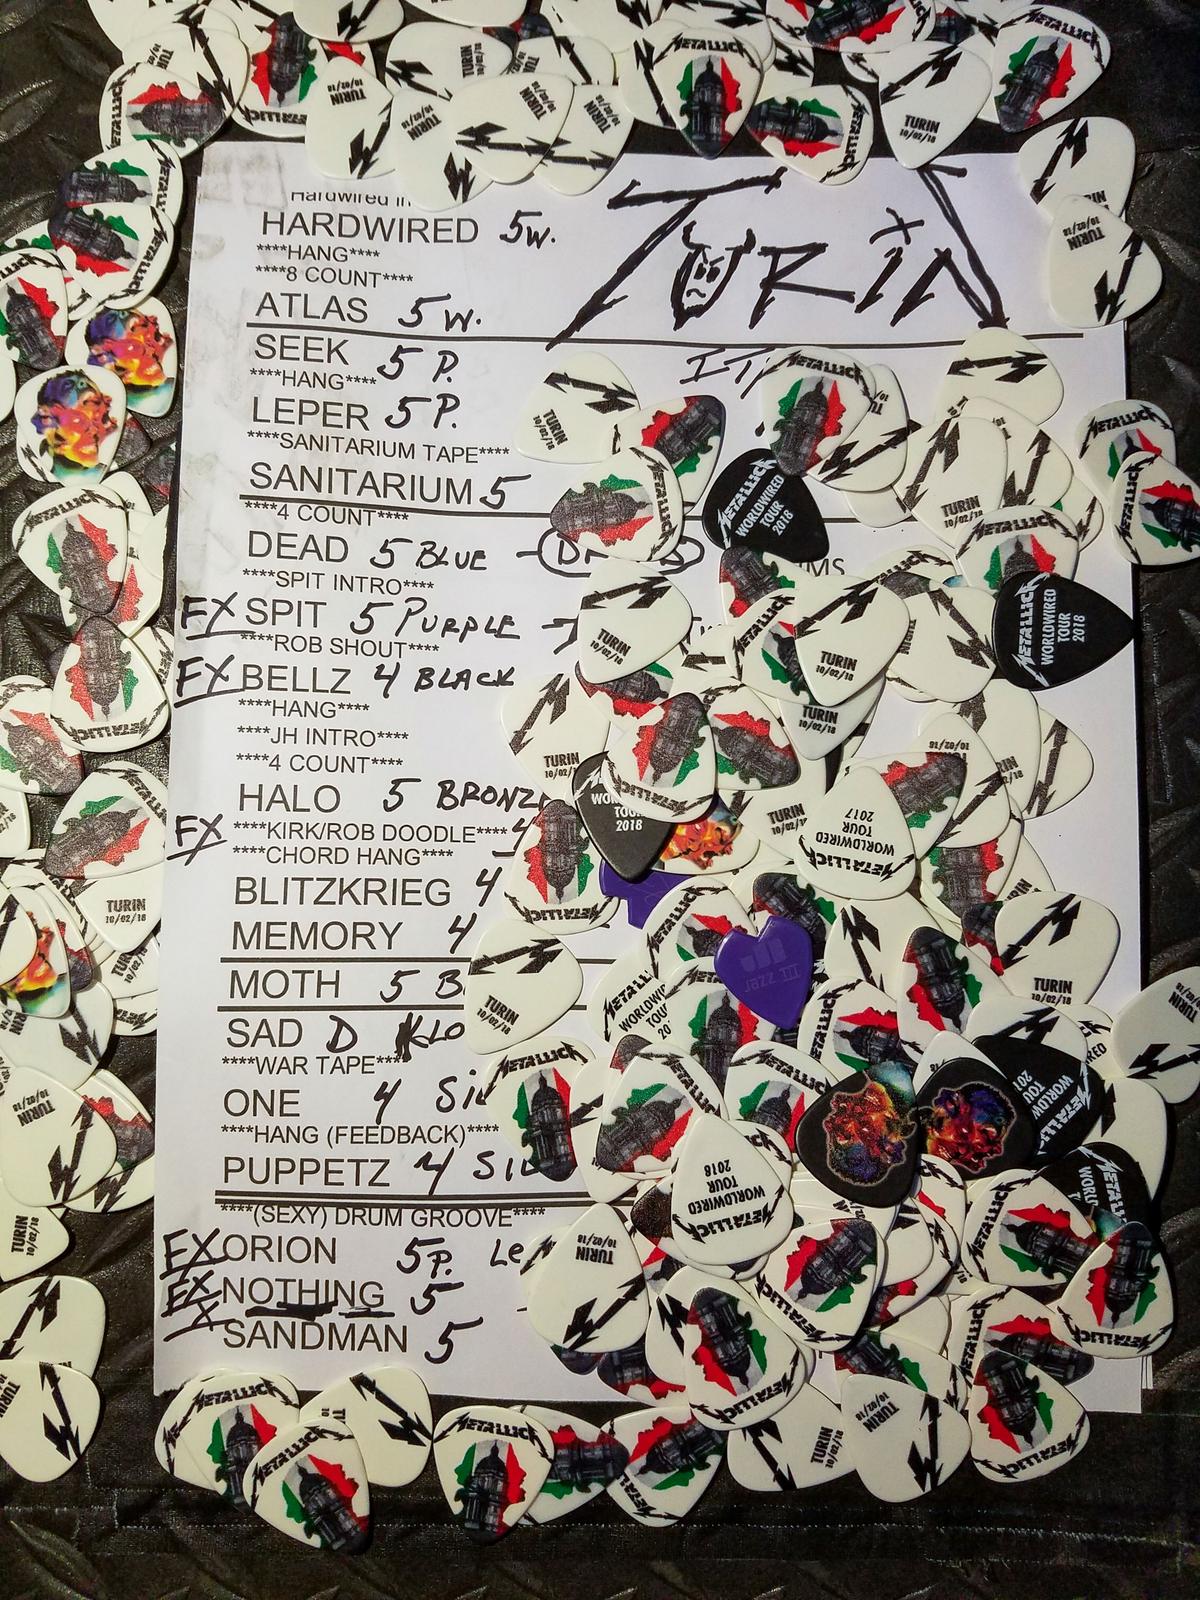 Hardwired in
TURiN
HARDWIRED 5W.
****HANG****
****8 COUNT****
ATLAS 5W.
SEEK 5 P.
****HANG****
LEPER 5 P.
****SANITARIUM TAPE****
SANITARIUM 5
****4 COUNT****
DEAD 5 BLUE
****SPIT INTRO****
FX SPIT 5 PURPLE
****ROB SHOUT****
FX BELLZ 4 BLACK
****HANG****
****JH INTRO****
****4 COUNT****
HALO 5 BRONZ
FX ****KIRK/ROB DOODLE**** 4
****CHORD HANG****
BLITZKRIEG 4
MEMORY 4
MOTH 5 B
SAD D KLO
****WAR TAPE****
ONE 4 SIL
****HANG (FEEDBACK)****
PUPPETZ 4 SIL
****(SEXY) DRUM GROOVE****
FX ORION 5P. Le
FX NOTHING 5
SANDMAN 5
METALLICA
TURIN
10/02/18
METALLICA
WORLDWIRED
TOUR
2018
METALLICA
WORLDWIRED
TOUR
2017
JAZZ III